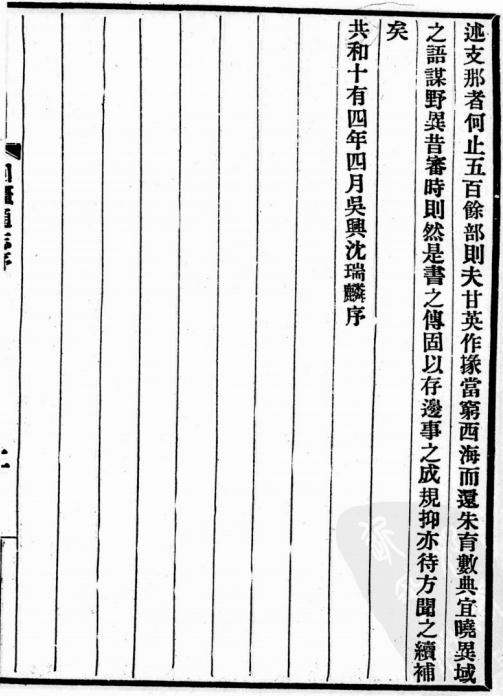 述支那者何止五百餘部則夫甘英作掾當窮西海而還朱育數典宜曉異域
之語謀野異昔審時則然是書之傳固以存邊事之成規抑亦待方聞之續補
矣
共和十有四年四月吳興沈瑞麟序